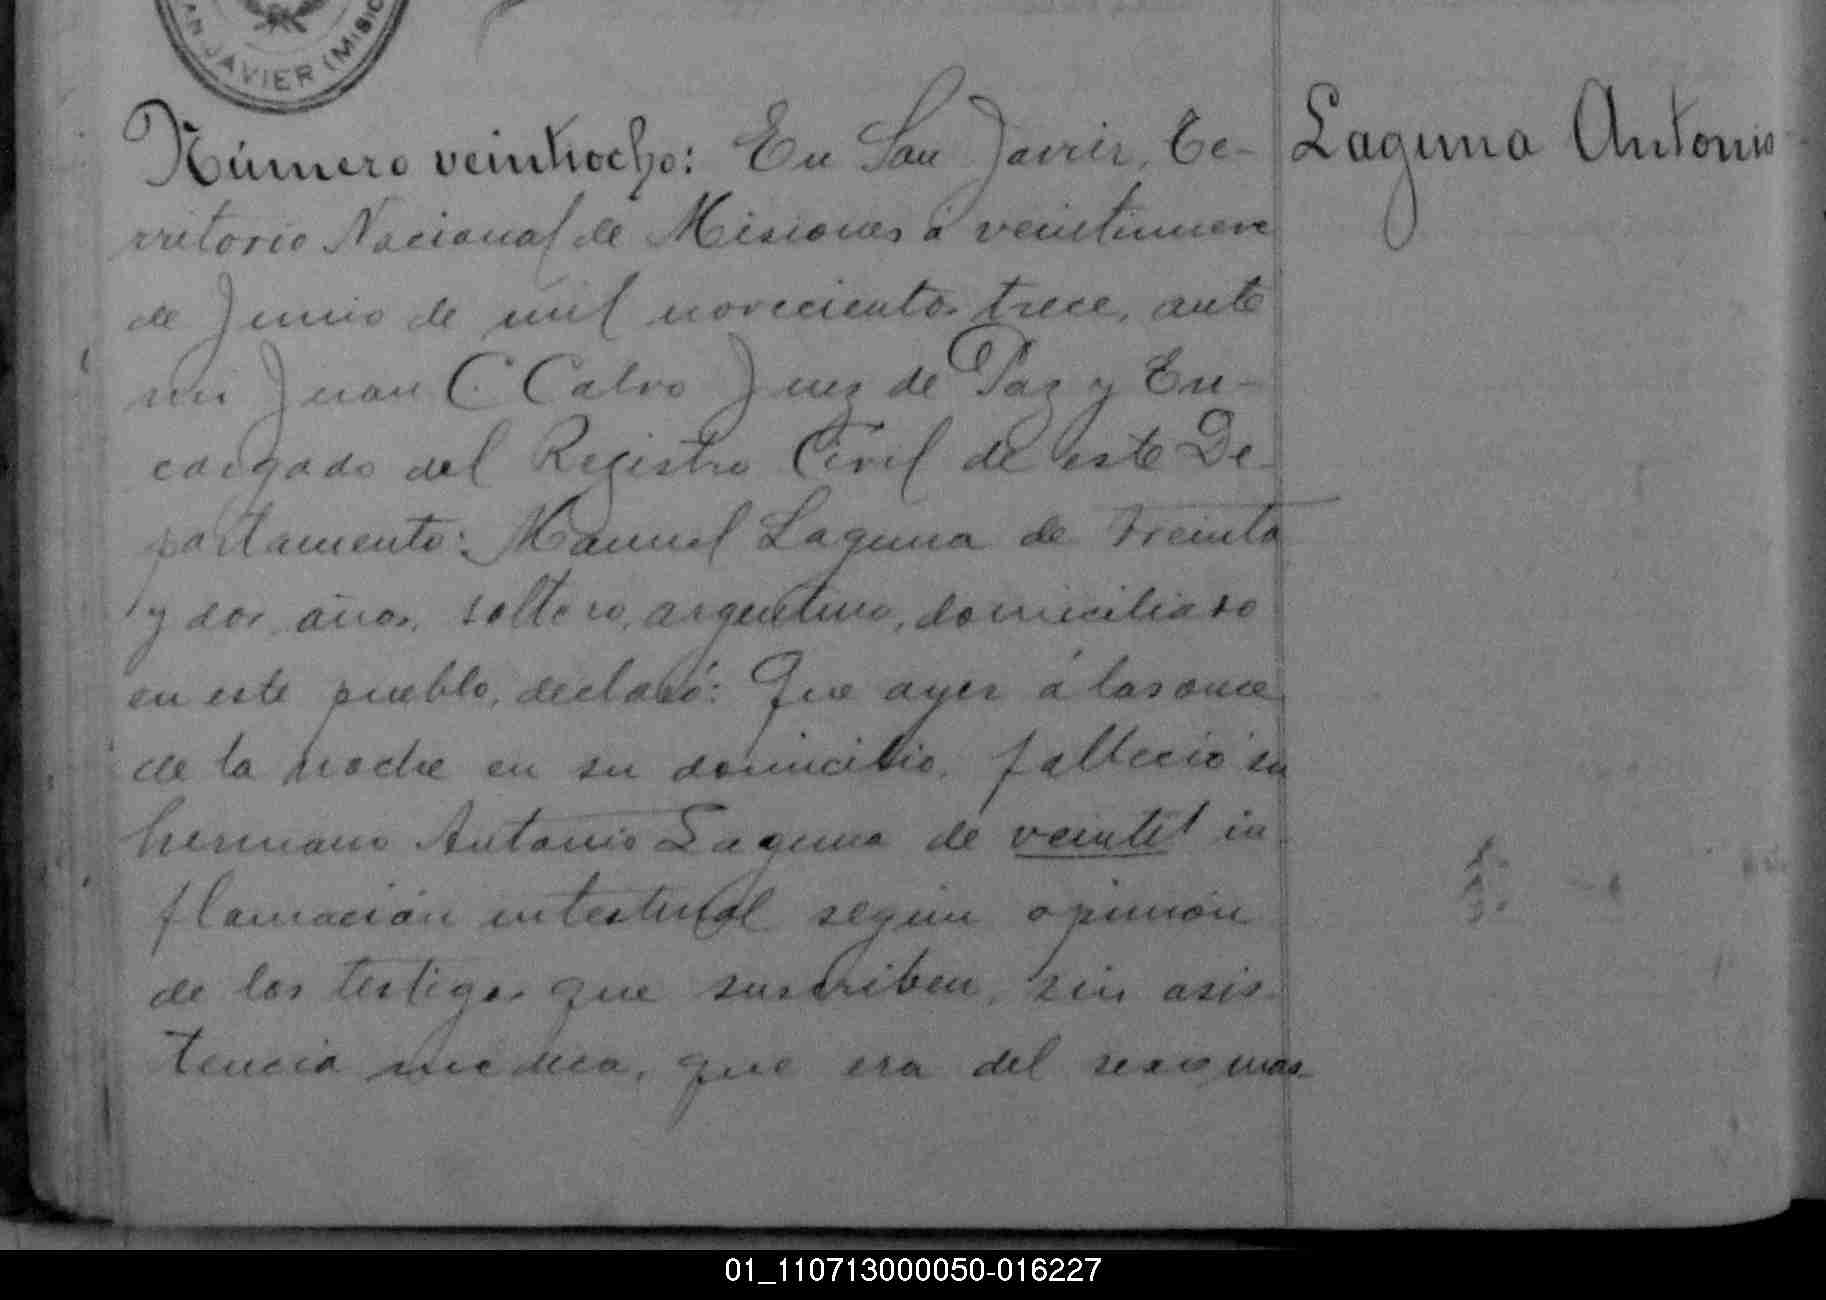 AN JAVIER (MISIC
Número veintiocho: En San Javier, Te-
rritorio Nacional de Misiones á veintinueve
de Junio de mil novecientos trece, ante
mi Juan C. Calvo Juez de Paz y En-
cargado del Registro Civil de este De-
partamento: Manuel Laguna de treinta
y dos años, soltero, argentino, domiciliado
en este pueblo, declaró: Que ayer á las once
de la noche en su domicilio, falleció su
hermano Antonio Laguna de veinte in
flamación intestinal según opinión
de los testigos que suscriben, sin asis-
tencia medica, que era del sexo mas-
Laguna Antonio
01_110713000050-016227